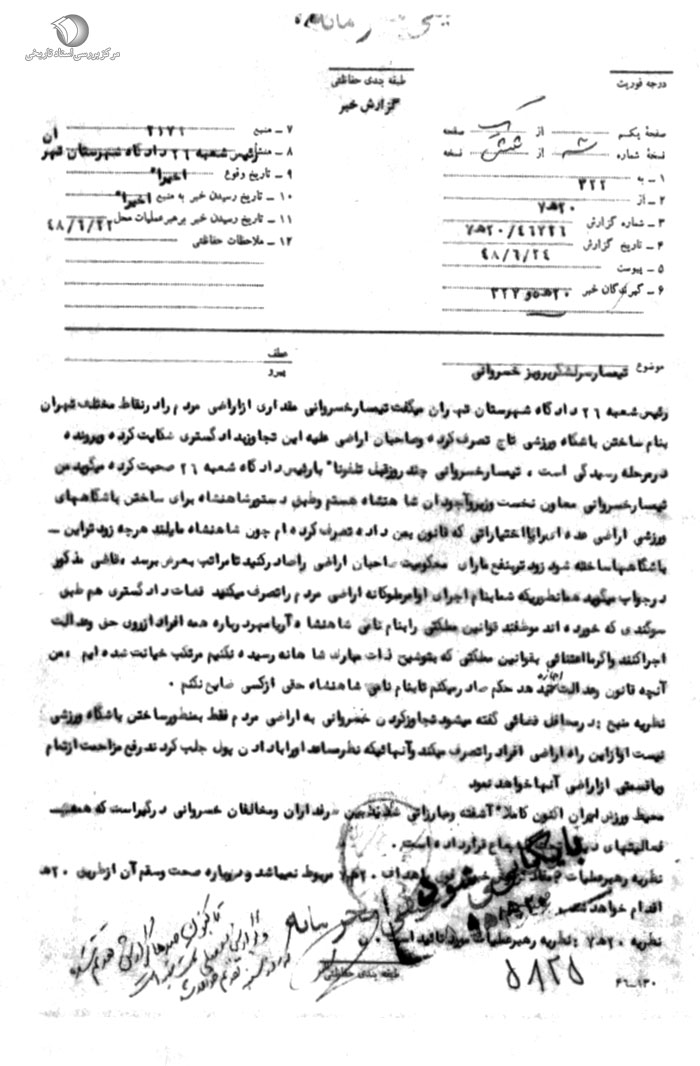 مرکز بررسی اسناد تاریخی
طبقه بندی حفاظتی
درجه فوریت
گزارش خبر
صفحهٔ یکم از یک صفحه
نسخهٔ شماره سه از شش نسخه
۱ ـ به ۳۲۲
۲ ـ از ۲۰هـ۷
۳ ـ شماره گزارش ۲۰/۴۶۲۲۶هـ۷
۴ ـ تاریخ گزارش ۴۸/۶/۲۴
۵ ـ پیوست
۶ ـ گیرندگان خبر
۷ ـ منبع ۲۱۷۱
۸ ـ منشاء رئیس شعبه ۲۶ دادگاه شهرستان تهران
۹ ـ تاریخ وقوع اخیرا"
۱۰ ـ تاریخ رسیدن خبر به منبع اخیرا"
۱۱ ـ تاریخ رسیدن خبر برهبر عملیات محل ۴۸/۶/۲۲
۱۲ ـ ملاحظات حفاظتی
موضوع تیمسار سرلشگر پرویز خسروانی
عطف
پیرو
رئیس شعبه ۲۶ دادگاه شهرستان تهران میگفت تیمسار خسروانی مقداری از اراضی مردم را در نقاط مختلف تهران
بنام ساختن باشگاه ورزشی تاج تصرف کرده وصاحبان اراضی علیه این تجاوز بدادگستری شکایت کرده و پرونده
در مرحله رسیدگی است ، تیمسار خسروانی چند روز قبل تلفونا" با رئیس دادگاه شعبه ۲۶ صحبت کرده میگوید من
تیمسار خسروانی معاون نخست وزیر و آجودان شاهنشاه هستم وطبق دستور شاهنشاه برای ساختن باشگاههای
ورزشی اراضی عده ای را با اختیاراتی که قانون بمن داده تصرف کرده ام چون شاهنشاه مایلند هرچه زودتر این ـ
باشگاهها ساخته شود زودتر بنفع ما رای محکومیت صاحبان اراضی را صادر کنید تا مراتب بعرض برسد ، قاضی مذکور
در جواب میگوید همانطوریکه شما بنام اجرای اوامر ملوکانه اراضی مردم را تصرف میکنید قضات دادگستری هم طبق
سوگندی که خورده اند موظفند قوانین مملکتی را بنام نامی شاهنشاه آریامهر درباره همه افراد از روی حق وعدالت
اجرا کنند واگر ما اعتنائی بقوانین مملکتی که بتوشیح ذات مبارک شاهانه رسیده نکنیم مرتکب خیانت شده ایم ، من
آنچه قانون وعدالت اجازه دهد حکم صادر میکنم تا بنام نامی شاهنشاه حقی از کسی ضایع نکنم .
نظریه منبع : در محافل قضائی گفته میشود تجاوز کردن خسروانی به اراضی مردم فقط بمنظور ساختن باشگاه ورزشی
نیست او از این راه اراضی افراد را تصرف میکند وآنهائیکه نظر مساعد او را با دادن پول جلب کردند رفع مزاحمت از تمام
ویا قسمتی از اراضی آنها خواهد نمود
محیط ورزش ایران اکنون کاملا" آشفته ومبارزاتی بین طرفداران ومخالفان خسروانی درگیر است که همه
فعالیتهای قرار داده است .
نظریه رهبر عملیات : مفاد خبر به اهداف ۲۰هـ۷ مربوط نمیباشد و درباره صحت وسقم آن از طریق ۲۰هـ
اقدام خواهد شد
نظریه ۲۰هـ۷ : نظریه رهبر عملیات مورد تائید است .
بایگانی شود
طبقه بندی حفاظتی
۵۸۲۵
۴۶ـ۱۳۰